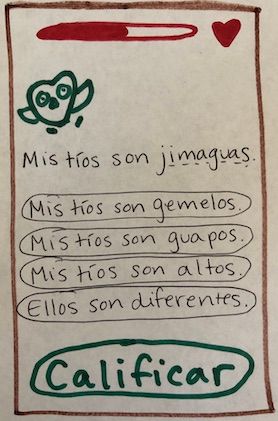 Mis tíos son jimaguas.
Mis tíos son gemelos.
Mis tíos son guapos.
Mis tíos son altos.
Ellos son diferentes.
Calificar